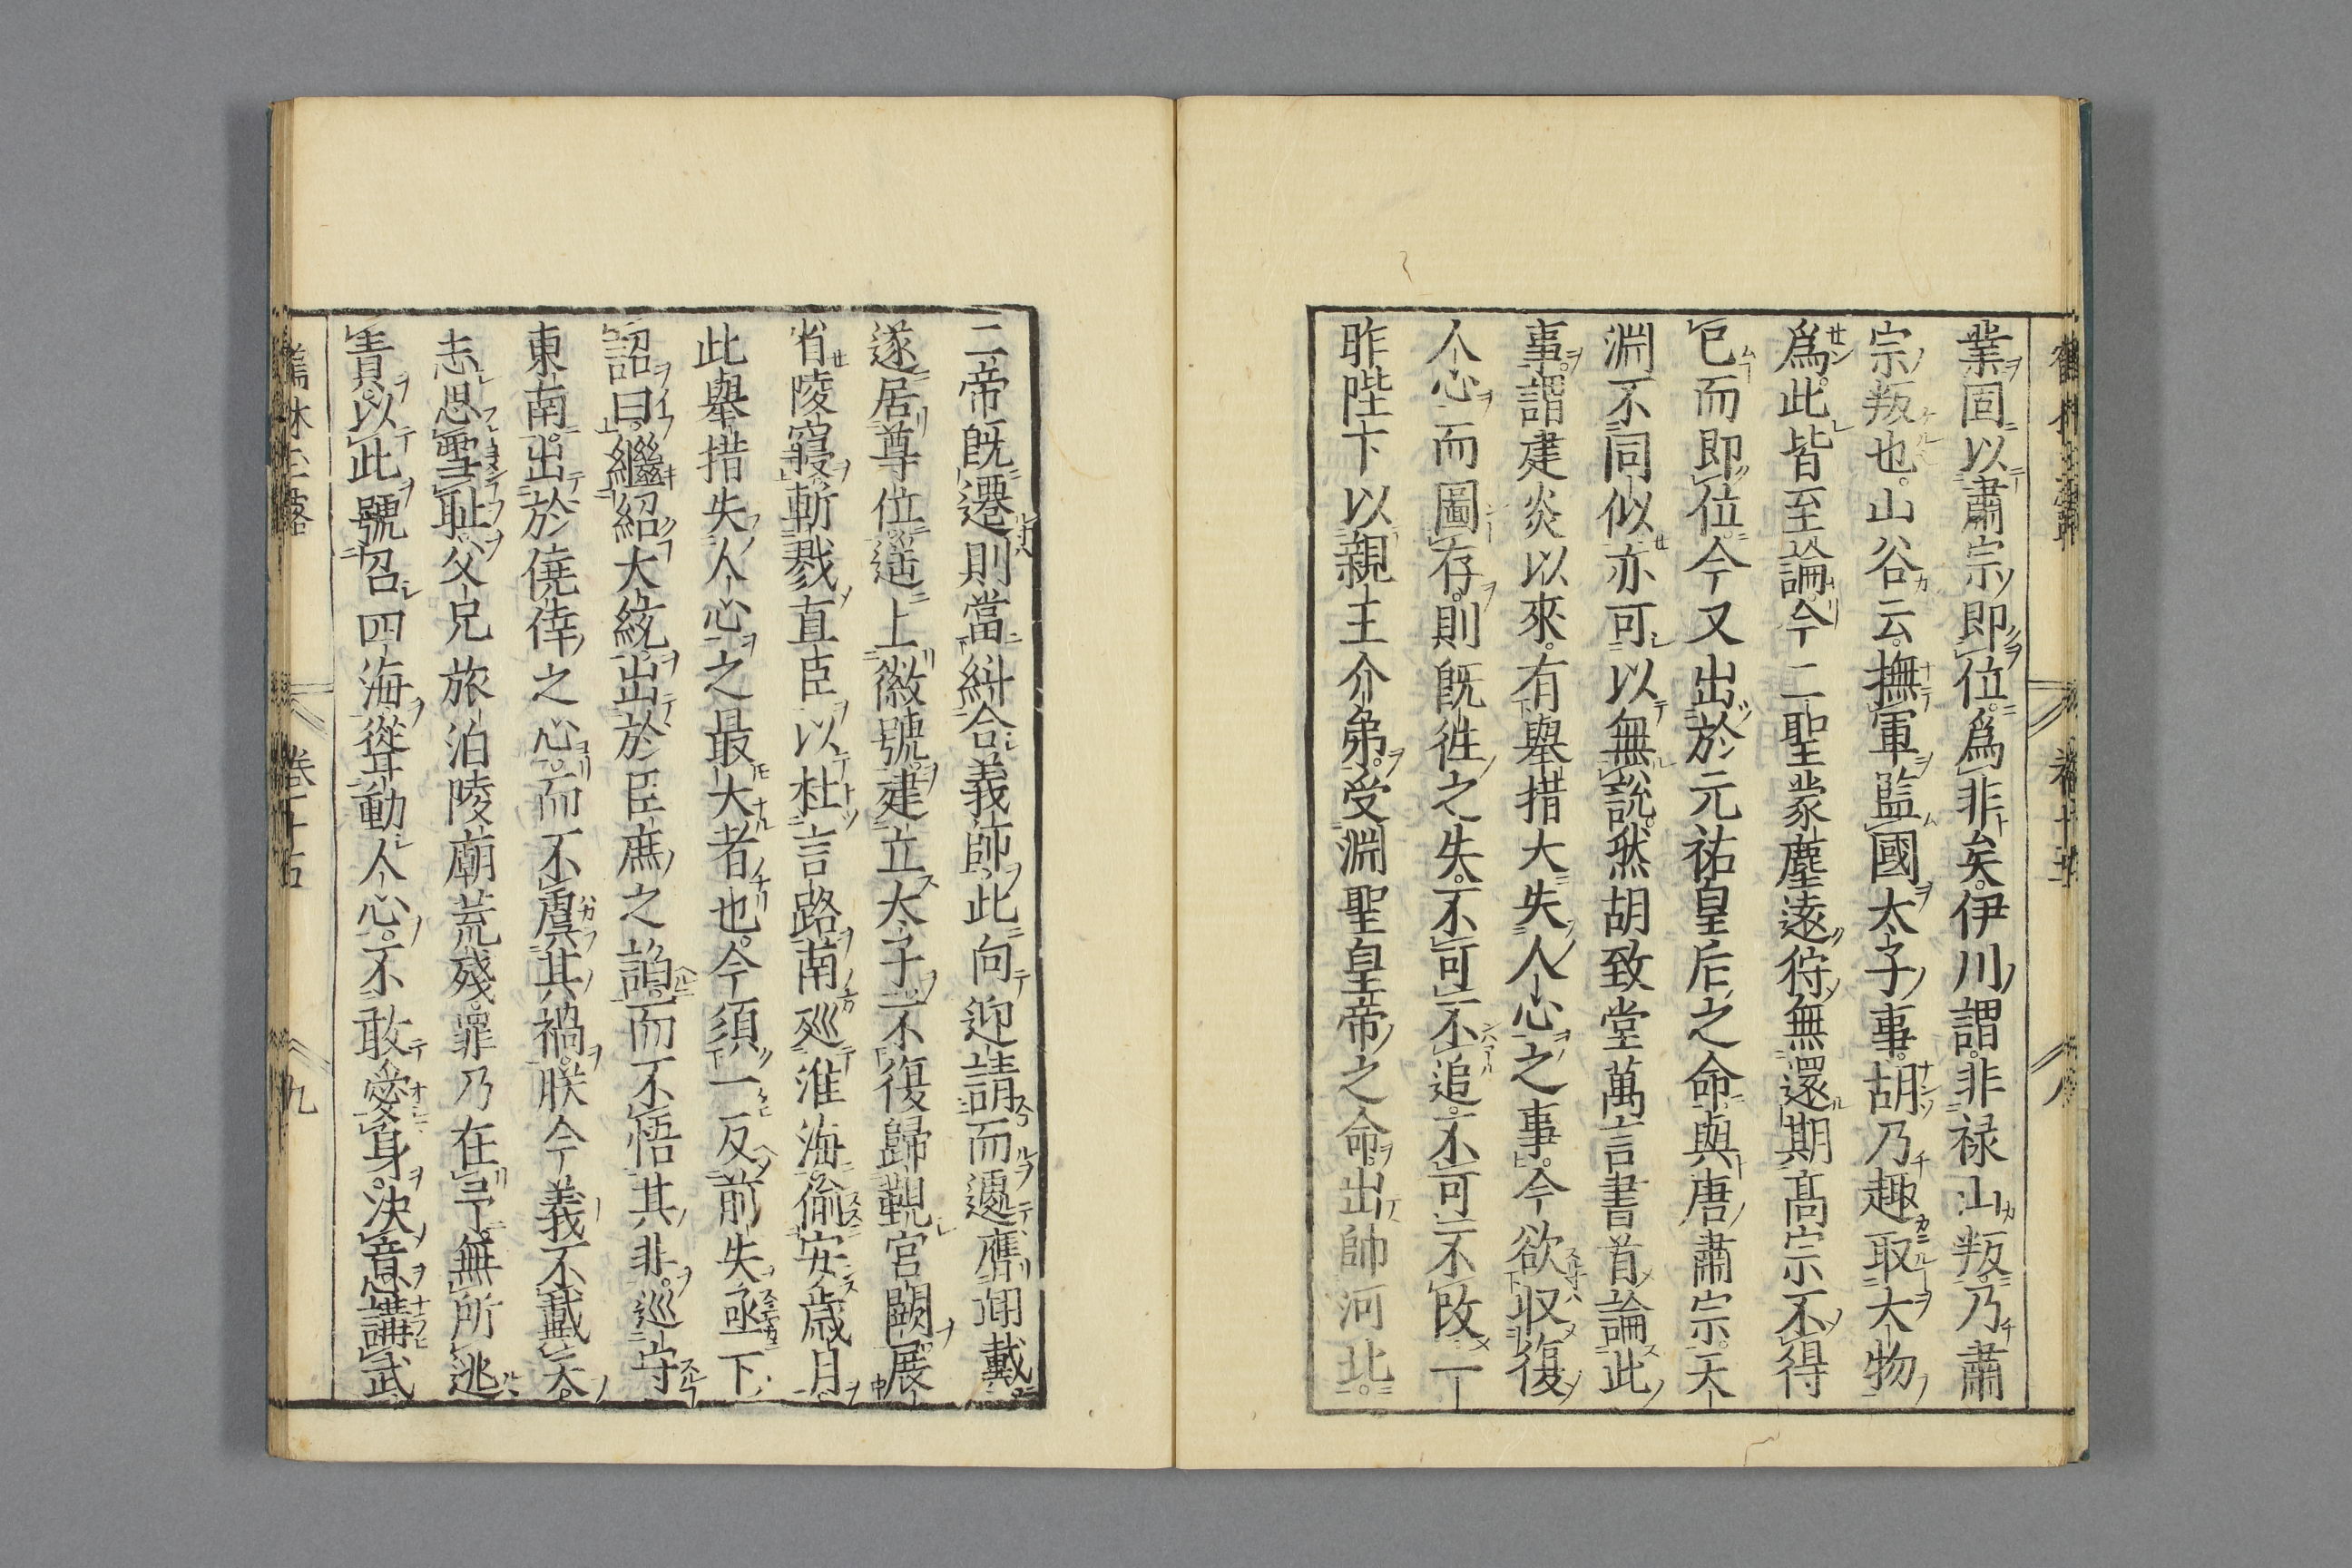 業固以肅宗即位爲非矣伊川謂非禄山叛乃肅
宗叛也山谷云撫軍監國太子事胡乃趣取大物
爲此皆至論今二聖蒙塵遠狩無還期髙宗不得
已而即位今又出於元祐皇后之命與唐肅宗天
淵不同似亦可以無説然胡致堂萬言書首論此
事謂建炎以來有舉措大失人心之事今欲収復
人心而圖存則既徃之失不可不追不可不改一
昨陛下以親王介弟受淵聖皇帝之命出帥河北
二帝既遷則當糾合義師北向迎請而遽膺翊戴
遂居尊位遥上徽號建立太子不復歸覲宮闕展
省陵寢斬戮直臣以杜言路南巡淮海偷安歳月
此舉措失人心之最大者也今須一反前失亟下
詔曰繼紹大統出於臣庶之諂而不悟其非巡守
東南出於僥倖之心而不虞其禍朕今義不戴天
志思雪耻父兄旅泊陵廟荒殘罪乃在予無所逃
責以此號召四海聳動人心不敢愛身決意講武
卷十五
九